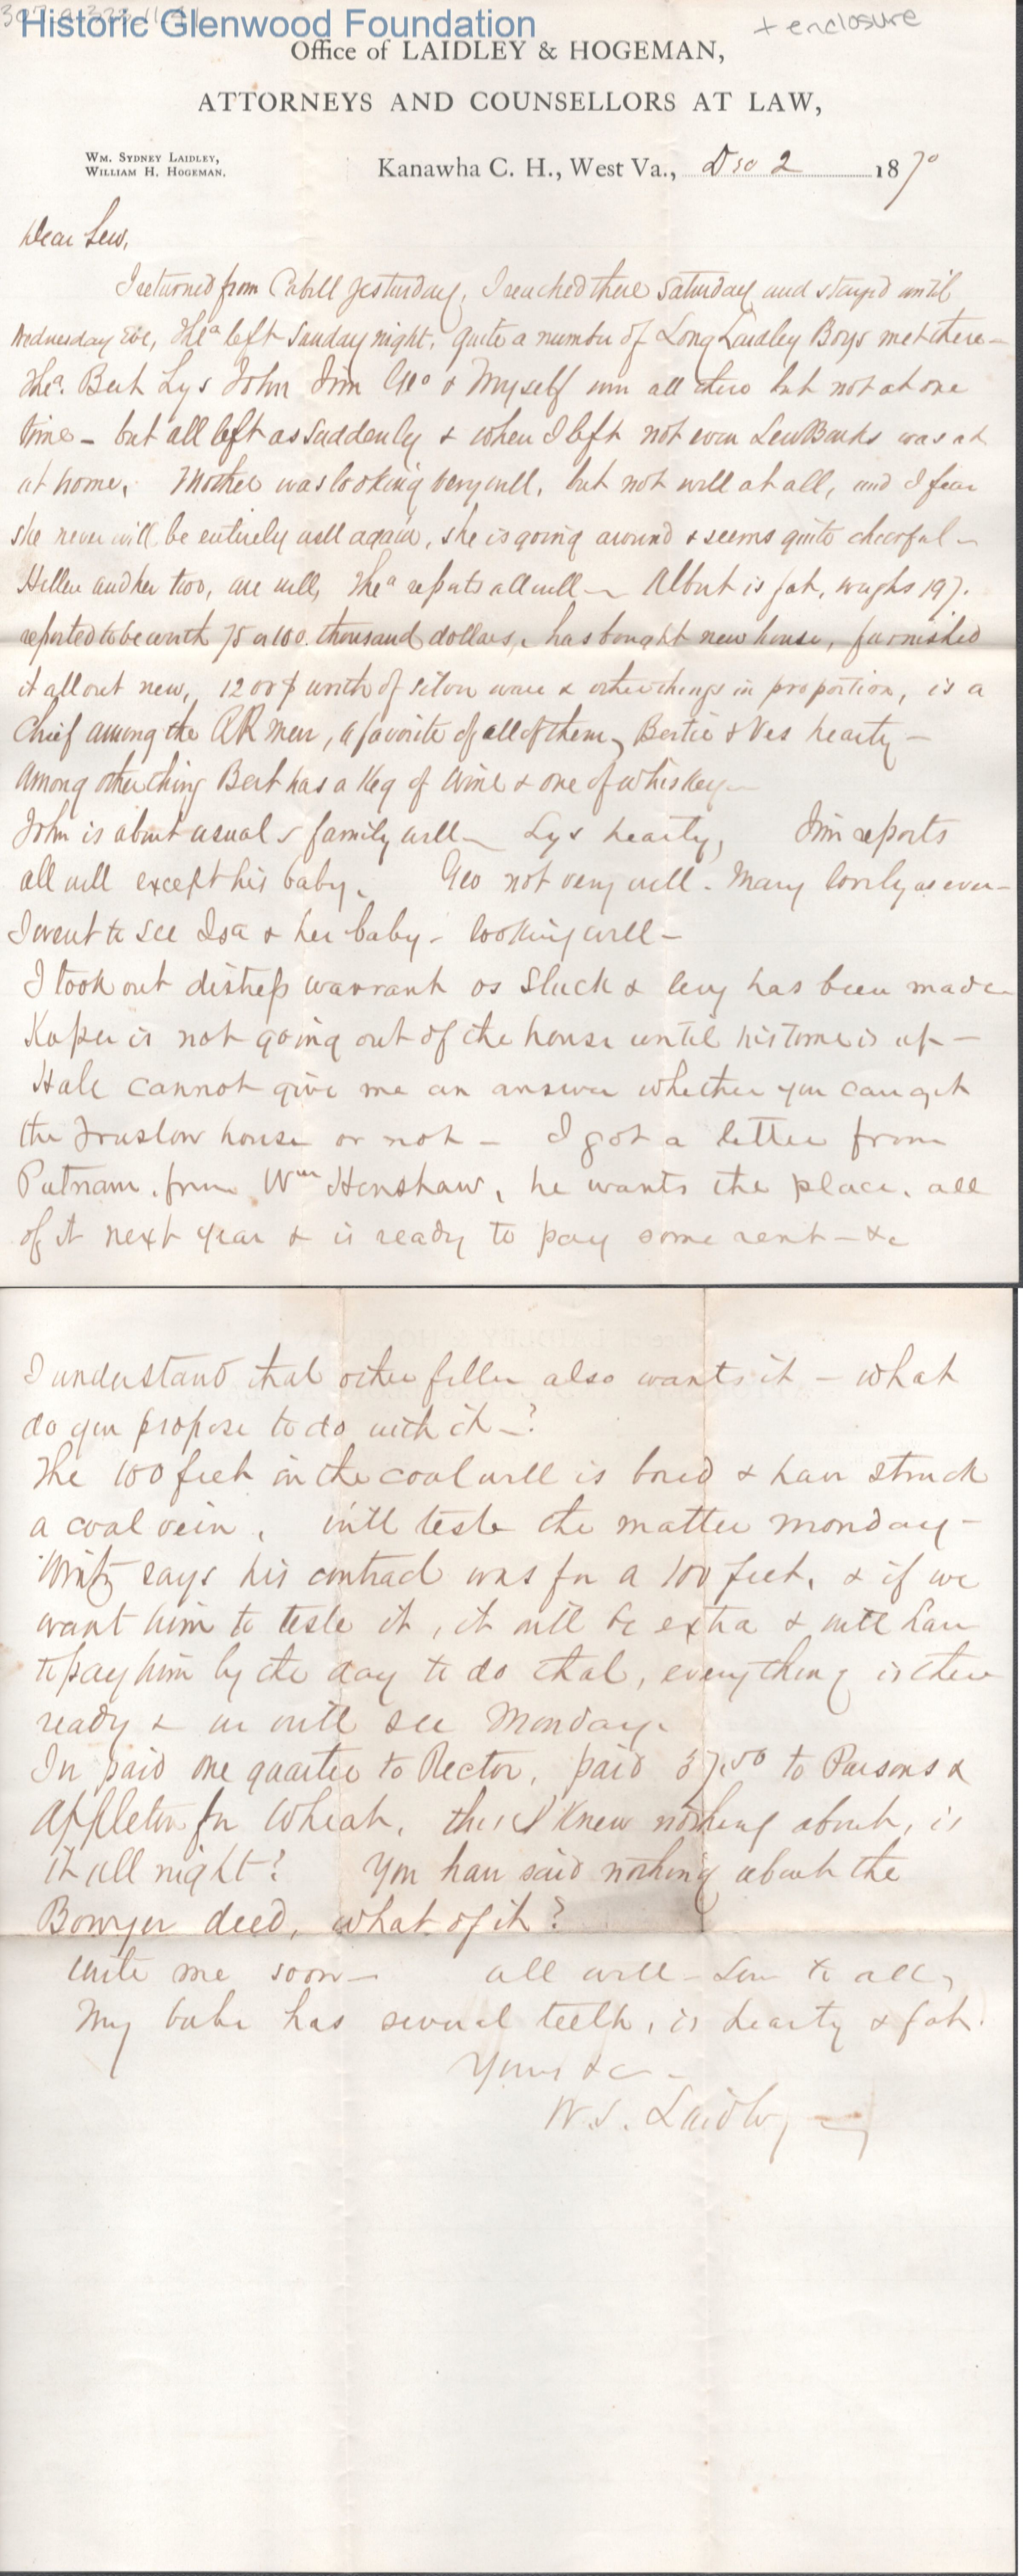 Historic Glenwood Foundation
+ enclosure
Office of LAIDLEY & HOGEMAN,
ATTORNEYS AND COUNSELLORS AT LAW,
WM. SYDNEY LAIDLEY,
WILLIAM H. HOGEMAN.
Kanawha C. H., West Va., Dec 2 1870
Dear Lew,
I returned from Cabell yesturday, I reached there Saturday and stayed until
Wednesday Eve, Theª left Sunday night, quite a number of Long Laidley Boys met there -
Theª. Bert Lys John Jim Geo & Myself were all there but not at one
time - but all left as suddenly & when I left not even Lew Banks was at
at home. Mother was looking very well, but not well at all, and I fear
she never will be entirely well again, she is going around & seems quite cheerful -
Hellen and her two, are well, Theª reports all well - Albert is fat, weighs 197.
reported to be worth 75 or 100. thousand dollars, has bought new house, furnished
it all out new, 1200$ worth of silver ware & other things in proportion, is a
Chief among the RR men, a favorite of all of them, Bertie & Ves hearty -
Among other thing Bert has a Keg of Wine & one of whiskey -
John is about usual & family well - Lys hearty, Jim reports
all well except his baby. Geo not very well - Mary lovely as ever -
I went to see Isa & her baby - looking well -
I took out distress warrant os Slack & levy has been made
is not going out of the house until his time is up -
Hale cannot give me an answer whether you can get
the Truslow house or not - I got a letter from
Putnam. from Wm Henshaw, he wants the place, all
of it next year & is ready to pay some rent - &c
I understand that other feller also wants it - what
do you propose to do with it - ?
The 100 feet in the coal well is bored & have struck
a coal vein. will teste the matter Monday -
says his contract was for a 100 feet, & if we
want him to teste it, it will be extra & will have
to pay him by the day to do that, everything is there
ready & we will see Monday.
In paid one quarter to Rector, paid 37.50 to Parsons &
Appleton for Wheat, this I knew nothing about, is
it all right? You have said nothing about the
Bowyer deed, what of it?
Write me soon - all well - Love to all,
My babe has several teeth, is hearty & fat.
Yours &c -
W. S. Laidley